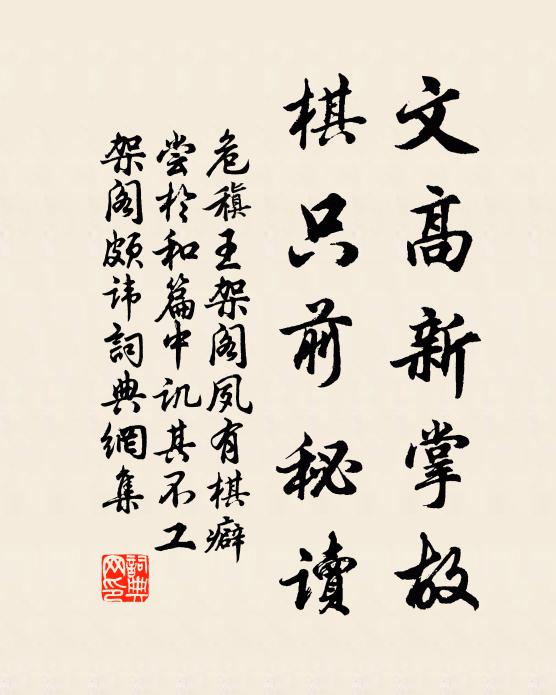 文高新掌故
棋只前秘讀
危稹王架閣夙有棋癖
尝於和篇中讥其不工
架阁頗讳詞典網集
詞典网印